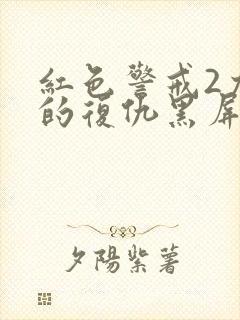 紅色警戒2
的復仇黑屏
夕陽紫薯